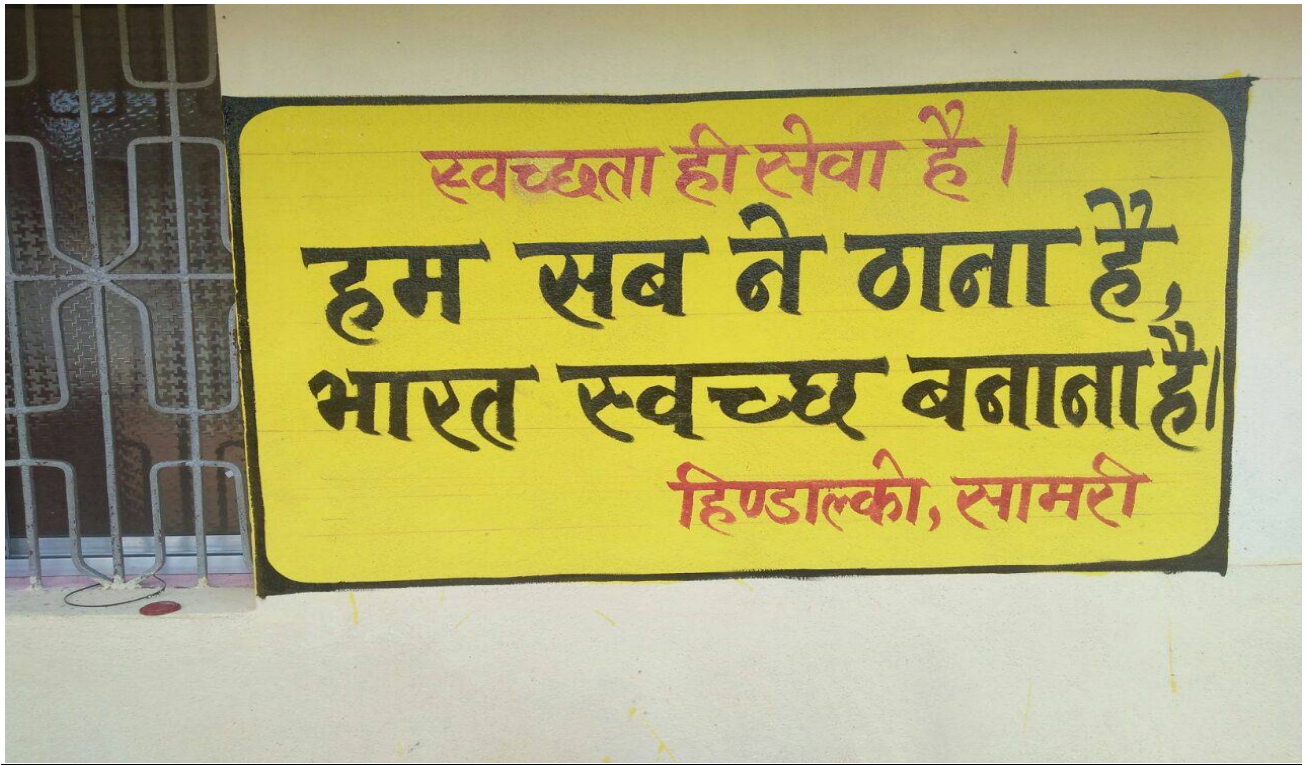 स्वच्छता ही सेवा है।
हम सब ने ठाना है,
भारत स्वच्छ बनाना है।
हिण्डाल्को, सामरी